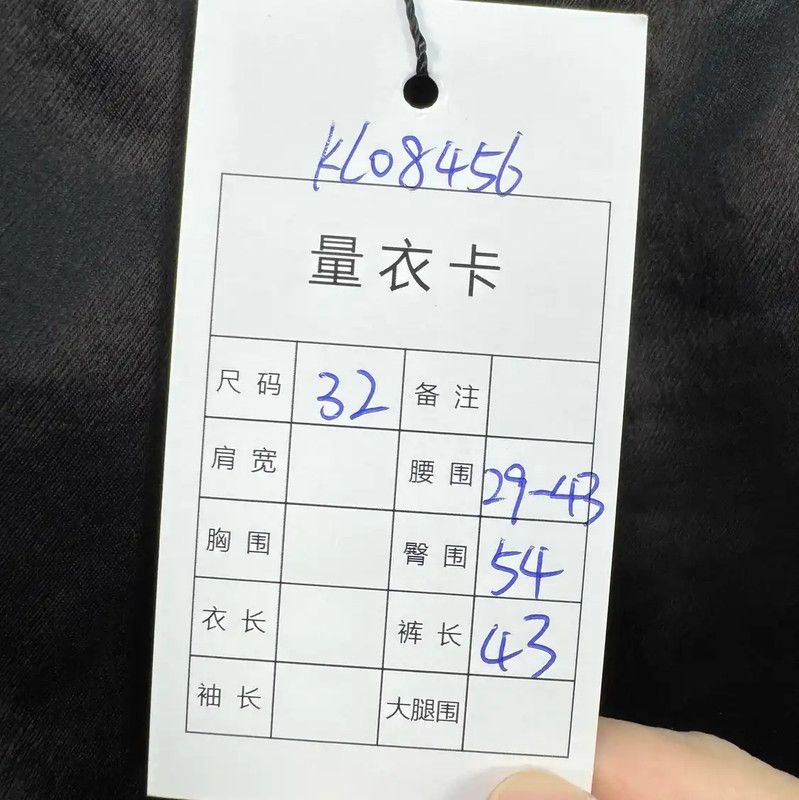 KL08456
量衣卡
尺码 32 备注
肩宽 腰围 29-43
胸围 臀围 54
衣长 裤长 43
袖长 大腿围